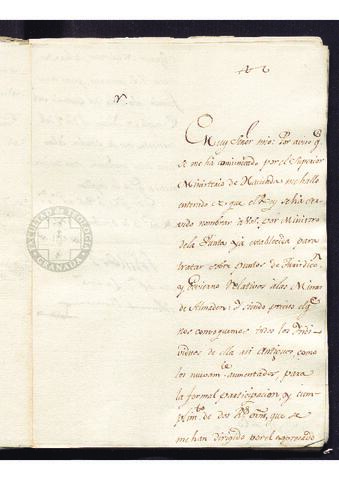 Muy Señor mio: Por aviso q.e
se me ha comunicado por el Superior
Ministerio de Hacienda me hallo
enterido de que el Rey se ha ser
vido nombrar a Vd. por Ministro
de la Junta ya establecida para
tratar sobre puntos de Juridicn.
y Govierno relativos a las Minas
de Almaden. Y siendo preciso el q.e
nos convoquemos todos los Indi
viduos de ella asi antiguos como
los nuevam.te aumentados para
la formal participacion, y cum-
plim.to de dos Rs. ornes, que se
me han dirigido por el expresado
FACULTAD DE TEOLOGIA
GRANADA